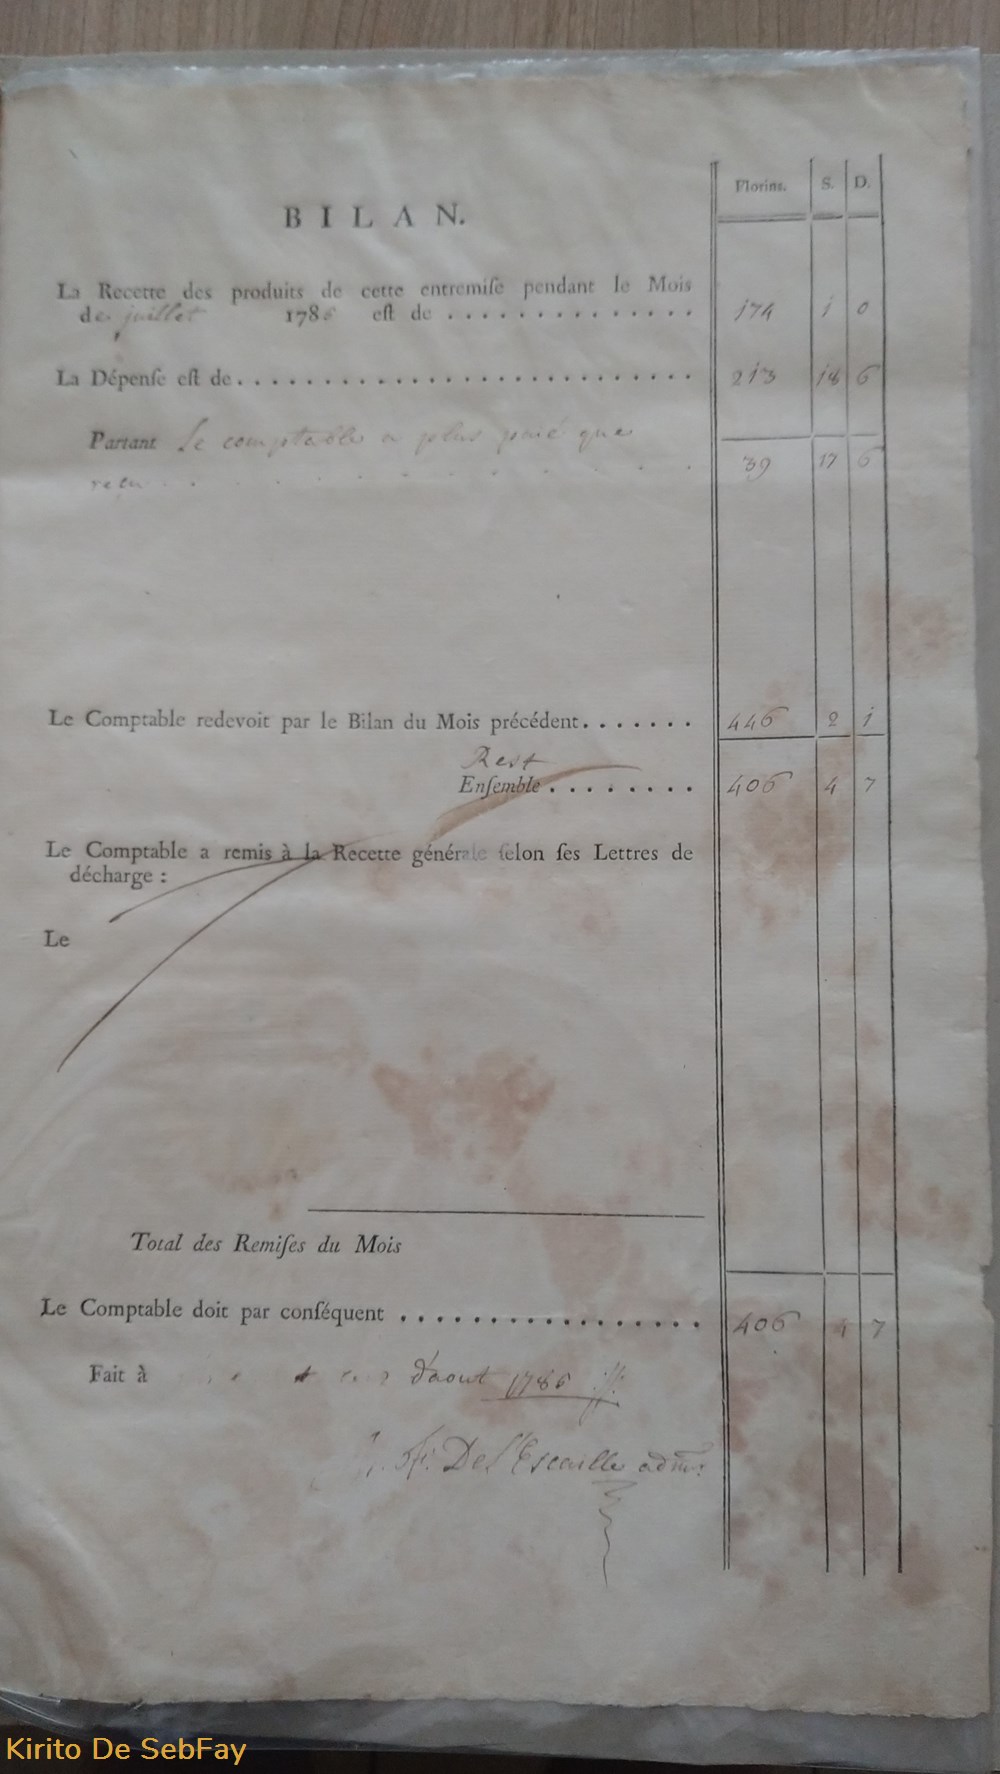 Florins. S. D.
BILAN.
La Recette des produits de cette entremiſe pendant le Mois
de juillet 1786 eſt de . . . . . . . . . . . . . . 174 1 0
La Dépenſe eſt de . . . . . . . . . . . . . . . . . . . . . . . . . . . 213 18 6
Partant Le comptable a plus paié que
reçu . . . . . . . . . . 39 17 6
Le Comptable redevoit par le Bilan du Mois précédent . . . . . . . 446 2 1
Rest
Enſemble . . . . . . . . 406 4 7
Le Comptable a remis à la Recette générale ſelon ſes Lettres de
décharge :
Le
Total des Remiſes du Mois
Le Comptable doit par conſéquent . . . . . . . . . . . . . . . . . 406 4 7
Fait à d'aout 1786
J. F. De l'Escaille adm.r
Kirito De SebFay